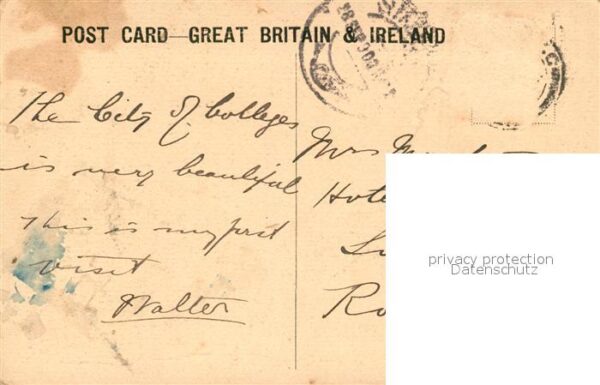 POST CARD—GREAT BRITAIN & IRELAND
The City of Colleges
is very beautiful
This is my first
visit
Walter
Mrs
Hote
Ro
privacy protection
Datenschutz